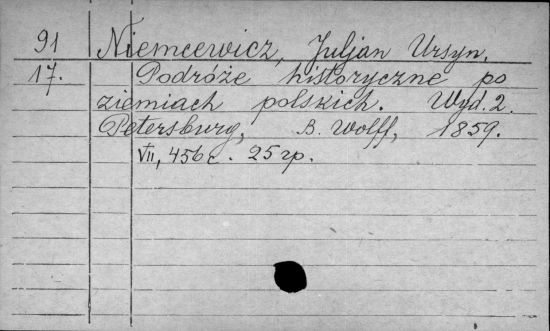 91 Niemcewicz, Juljan Ursyn.
17. Podróże historyczne po
ziemiach polskich. Wyd. 2.
Petersburg, B. Wolff, 1859.
VII, 456 c. 25 гр.